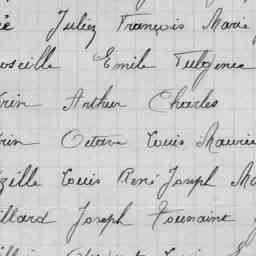 Julien François Marie
oseille Emile Fulgence
rin Arthur Charles
rin Octave Louis Maurice
zille Louis René Joseph Ma
illard Joseph Toussaint